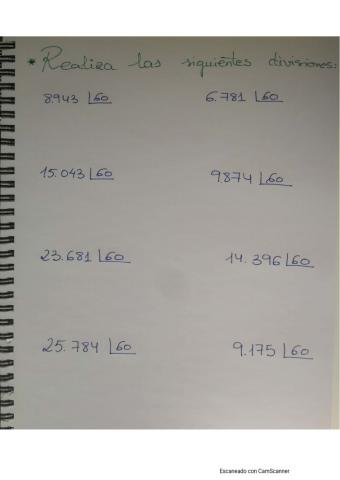 * Realiza las siguientes divisiones:
8.943 60 6.781 60
15.043 60 9.874 60
23.681 60 14.396 60
25.784 60 9.175 60
Escaneado con CamScanner